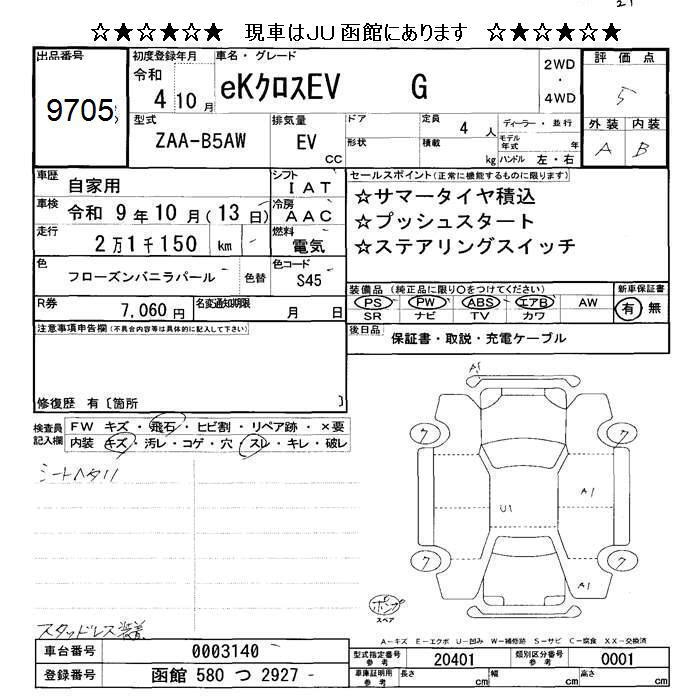 ☆★☆★☆★ 現車はJU函館にあります ☆★☆★☆★
出品番号
9705
初度登録年月
令和
4 10 月
車名・グレード
eKクロスEV G
2WD
・
4WD
評価点
5
外装 内装
A B
型式
ZAA-B5AW
排気量
EV
cc
ドア
形状
定員
4 人
積載
kg
ディーラー・並行
モデル年式 年
ハンドル 左・右
車歴
自家用
シフト
IAT
車検
令和 9 年 10 月(13 日)
冷房
AAC
走行
2 万 1 千 150 km
燃料
電気
色
フローズンバニラパール
色替
色コード
S45
R券
7,060 円
名変通知期限
月 日
セールスポイント(正常に機能するものに限ります)
☆サマータイヤ積込
☆プッシュスタート
☆ステアリングスイッチ
装備品(純正品に限り○をつけてください)
PS PW ABS エアB AW
SR ナビ TV カワ
新車保証書
有 無
後日品
保証書・取説・充電ケーブル
注意事項申告欄(不具合内容等は具体的に記入して下さい)
修復歴 有〔箇所 〕
検査員記入欄
FW キズ・飛石・ヒビ割・リペア跡・×要
内装 キズ・汚レ・コゲ・穴・スレ・キレ・破レ
シートヘタリ
スタッドレス装着
A1
ワ ワ
A1
U1
ワ ワ
A1
ポンプ
スペア
A-キズ E-エクボ U-凹み W-補修跡 S-サビ C-腐食 XX-交換済
車台番号
0003140
登録番号
函館 580 つ 2927
型式指定番号
参考
20401
類別区分番号
参考
0001
車庫証明用
参考
長さ cm
幅 cm
高さ cm